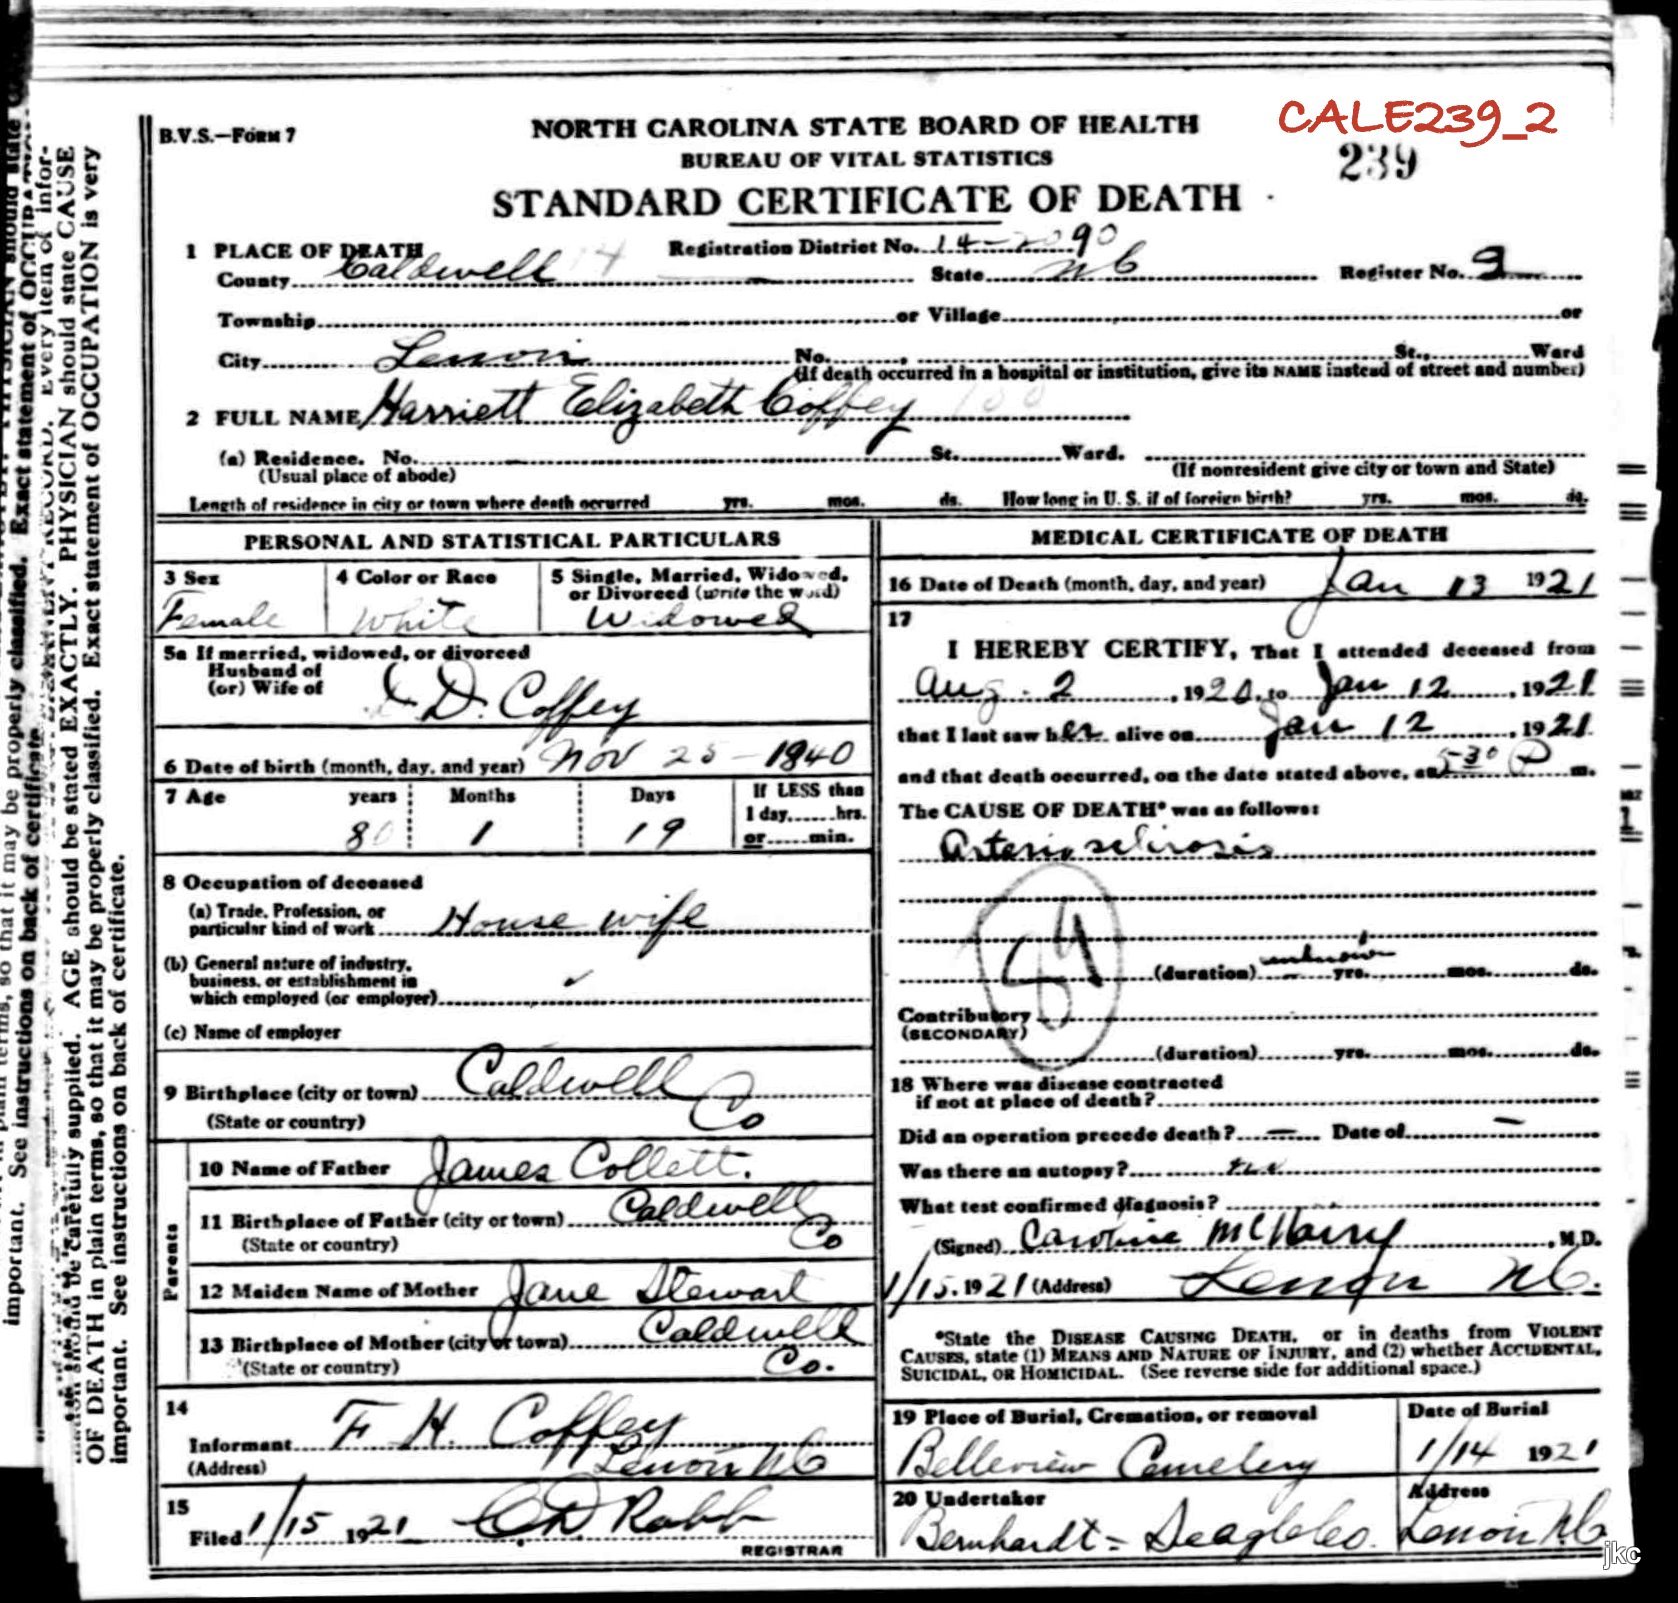 CALE239_2
B.V.S.—FORM 7
NORTH CAROLINA STATE BOARD OF HEALTH
BUREAU OF VITAL STATISTICS
239
STANDARD CERTIFICATE OF DEATH
1 PLACE OF DEATH
Registration District No. 14-2090
County Caldwell State NC Register No. 3
Township or Village or
City Lenoir No. St., Ward
(If death occurred in a hospital or institution, give its NAME instead of street and number)
2 FULL NAME Harriett Elizabeth Coffey
(a) Residence. No. St. Ward.
(Usual place of abode) (If nonresident give city or town and State)
Length of residence in city or town where death occurred yrs. mos. ds. How long in U. S. if of foreign birth? yrs. mos. ds.
PERSONAL AND STATISTICAL PARTICULARS
3 Sex 4 Color or Race 5 Single, Married, Widowed,
or Divorced (write the word)
Female White Widowed
5a If married, widowed, or divorced
Husband of
(or) Wife of D. Coffey
6 Date of birth (month, day, and year) Nov 25 - 1840
7 Age years Months Days If LESS than
1 day, hrs.
80 1 19 or min.
8 Occupation of deceased
(a) Trade, Profession, or
particular kind of work House wife
(b) General nature of industry,
business, or establishment in
which employed (or employer)
(c) Name of employer
9 Birthplace (city or town) Caldwell
(State or country) Co
Parents
10 Name of Father James Collett.
11 Birthplace of Father (city or town) Caldwell
(State or country) Co
12 Maiden Name of Mother Jane Stewart
13 Birthplace of Mother (city or town) Caldwell
(State or country) Co.
14
Informant F H. Coffey
(Address) Lenoir NC
15
Filed 1/15 1921 Robb
REGISTRAR
MEDICAL CERTIFICATE OF DEATH
16 Date of Death (month, day, and year) Jan 13 1921
17
I HEREBY CERTIFY, That I attended deceased from
Aug. 2, 1920, to Jan 12, 1921
that I last saw her alive on Jan 12, 1921
and that death occurred, on the date stated above, at 530 P m.
The CAUSE OF DEATH* was as follows:
Arterio sclirosis
84
(duration) unknown yrs. mos. ds.
Contributory
(SECONDARY)
(duration) yrs. mos. ds.
18 Where was disease contracted
if not at place of death?
Did an operation precede death? — Date of —
Was there an autopsy? no
What test confirmed diagnosis?
(Signed) Caroline McNairy, M.D.
1/15, 1921 (Address) Lenoir NC.
*State the DISEASE CAUSING DEATH, or in deaths from VIOLENT
CAUSES, state (1) MEANS AND NATURE OF INJURY, and (2) whether ACCIDENTAL,
SUICIDAL, OR HOMICIDAL. (See reverse side for additional space.)
19 Place of Burial, Cremation, or removal Date of Burial
Belleview Cemetery 1/14 1921
20 Undertaker Address
Bernhardt = Seagle Co. Lenoir N.C.
jkc
mation should be carefully supplied. AGE should be stated EXACTLY. PHYSICIAN should state CAUSE
OF DEATH in plain terms, so that it may be properly classified. Exact statement of OCCUPATION is very
important. See instructions on back of certificate.